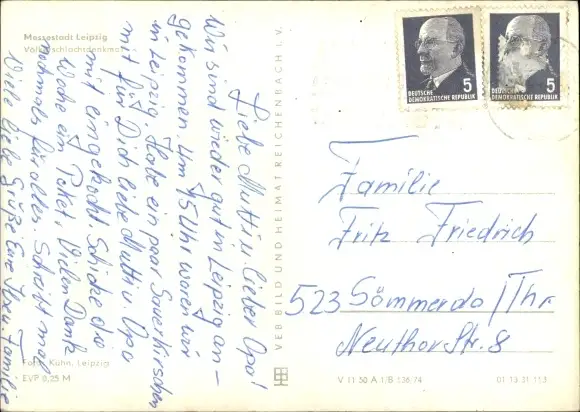 Messestadt Leipzig
Völkerschlachtdenkmal
Liebe Mutti u. lieber Opa!
Wir sind wieder gut in Leipzig an-
gekommen. Um 15 Uhr waren wir
in Leipzig. Habe ein paar Sauerkirschen
mit für Dich liebe Mutti u. Opa
mit eingekocht. Schicke die
Woche ein Paket. Vielen Dank
nochmals für alles. Schreibt mal
Viele liebe Grüße Eure Familie
Foto: Kühn, Leipzig
EVP 0,25 M
VEB BILD UND HEIMAT REICHENBACH I. V.
5
DEUTSCHE
DEMOKRATISCHE REPUBLIK
5
DEUTSCHE
DEMOKRATISCHE REPUBLIK
Familie
Fritz Friedrich
523 Sömmerda/Thr
Neuthor Str. 8
V 11 50 A 1/B 636/74
01 13 11 113